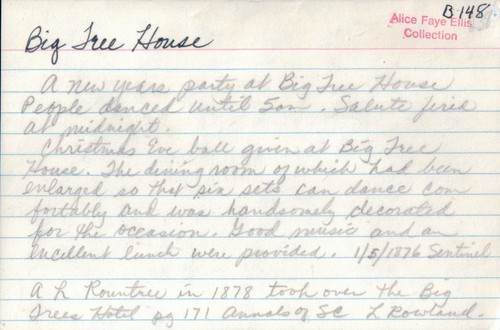 B-148
Alice Faye Ellis
Collection
Big Tree House
A new years party at Big Tree House
People danced until 5am. Salute fired
at midnight.
Christmas Eve ball given at Big Tree
House. The dining room of which had been
enlarged so that six sets can dance com
fortably and was handsomely decorated
for the occasion. Good music and an
excellent lunch were provided. 1/5/1876 Sentinel
A L Rountree in 1878 took over the Big
Trees Hotel pg 171 Annals of SC L Rowland.